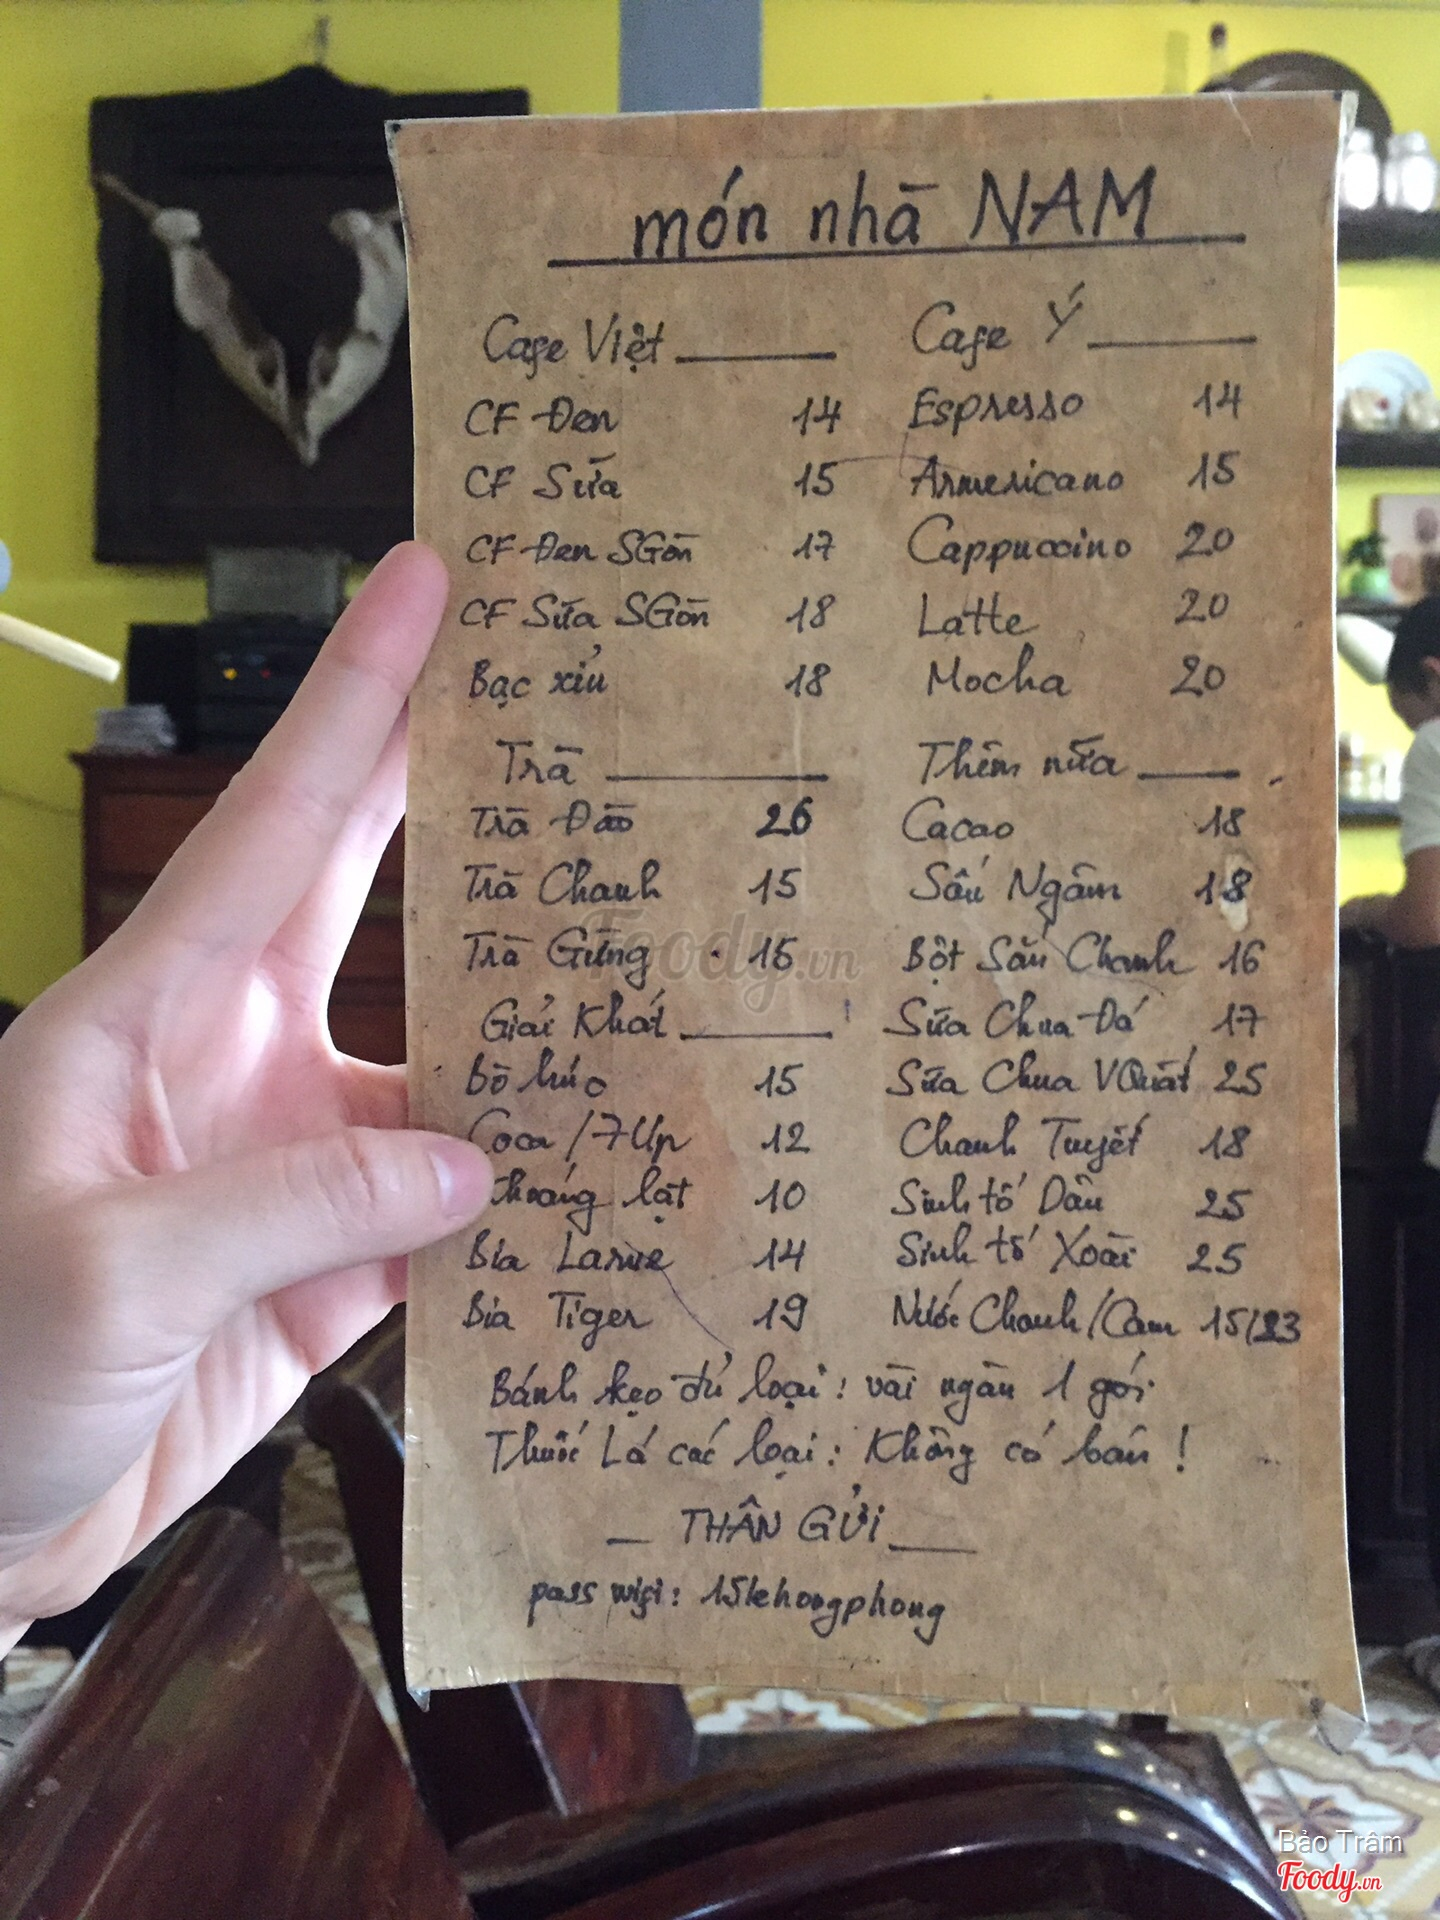 món nhà NAM
Cafe Việt
CF Đen 14
CF Sữa 15
CF Đen SGòn 17
CF Sữa SGòn 18
Bạc xỉu 18
Trà
Trà Đào 26
Trà Chanh 15
Trà Gừng 15
Giải Khát
Bò húc 15
Coca / 7Up 12
Khoáng lạt 10
Bia Larue 14
Bia Tiger 19
Cafe Ý
Espresso 14
Armericano 15
Cappuccino 20
Latte 20
Mocha 20
Thêm nữa
Cacao 18
Sấu Ngâm 18
Bột Sắn Chanh 16
Sữa Chua Đá 17
Sữa Chua VQuất 25
Chanh Tuyết 18
Sinh tố Dâu 25
Sinh tố Xoài 25
Nước Chanh/Cam 15/23
Bánh kẹo đủ loại: vài ngàn 1 gói
Thuốc Lá các loại: Không có bán!
THÂN GỬI
pass wifi: 151ehongphong
Foody.vn
Bảo Trâm
Foody.vn